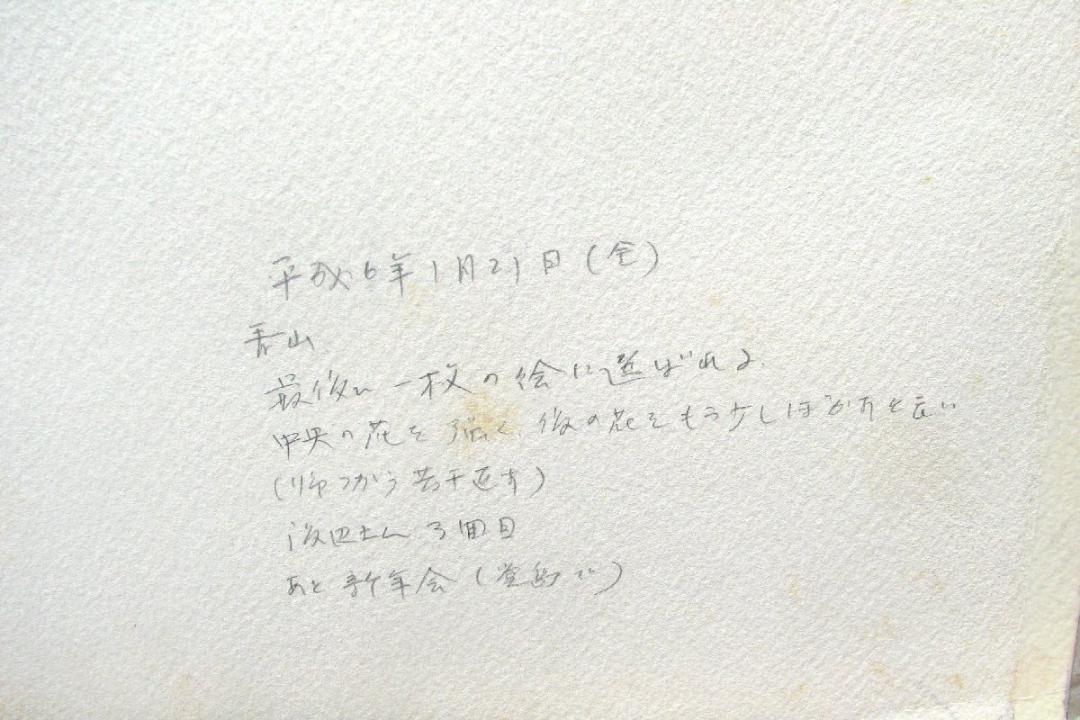 平成6年1月21日(金)
青山
最後に一枚の絵に選ばれる.
中央の花を強く、後の花をもう少しぼかすと良い
(帰 若干返す)
渡辺さん 3回目
あと新年会(堂島で)